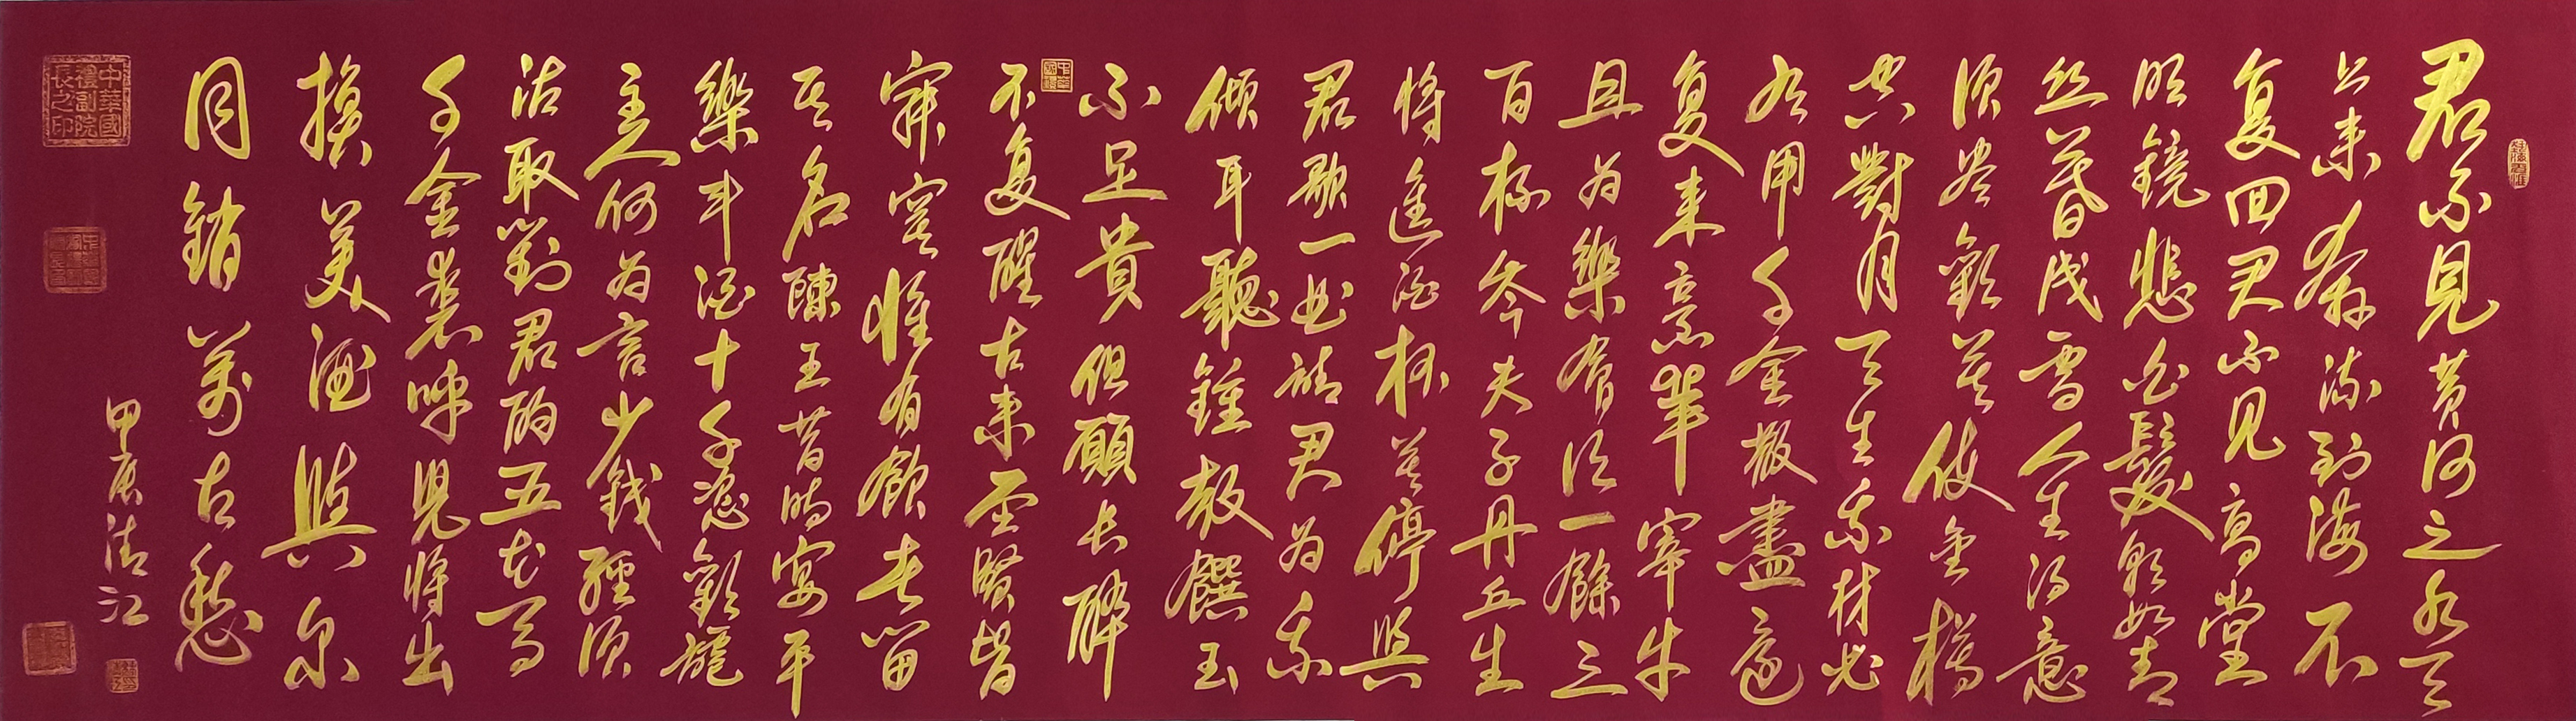 君不見黄河之水天
上来奔流到海不
复回君不見高堂
明鏡悲白髮朝如青
丝暮成雪人生得意
须尽歡莫使金樽
空對月天生我材必
有用千金散盡還
复来烹羊宰牛
且为樂會须一飲三
百杯岑夫子丹丘生
将進酒杯莫停與
君歌一曲請君为我
倾耳聽鐘鼓饌玉
不足貴但願长醉
不复醒古来聖賢皆
寂寞惟有飲者留
其名陳王昔時宴平
樂斗酒十千恣歡謔
主人何为言少錢徑须
沽取對君酌五花馬
千金裘呼兒将出
换美酒與尔
同銷萬古愁
甲辰清江
中華國禮副院長之印